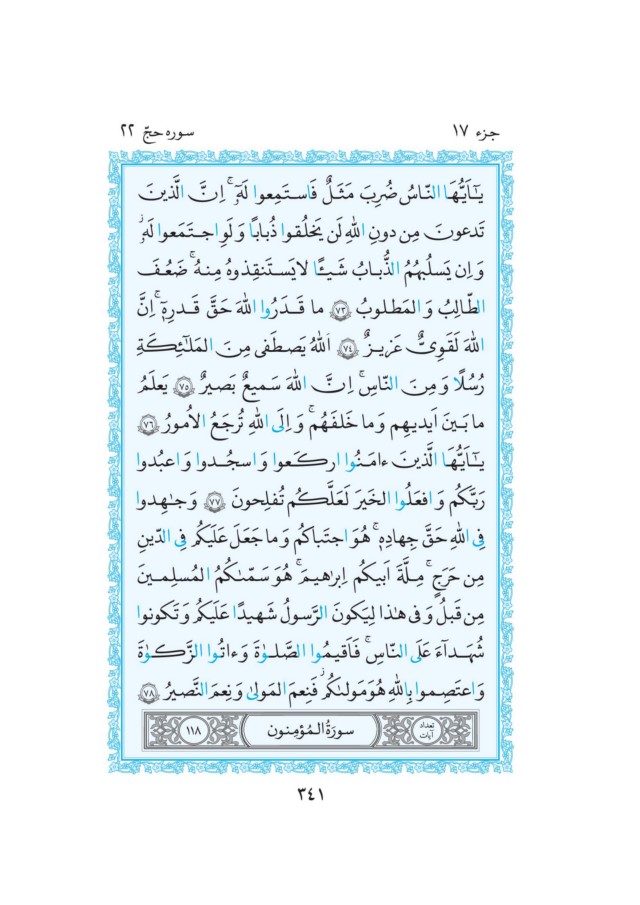 جزء ۱۷
سوره حجّ ۲۲
يـٰٓأَيُّهَا النّاسُ ضُرِبَ مَثَلٌ فَاستَمِعوا لَهُۥٓ ۚ اِنَّ الَّذينَ
تَدعونَ مِن دونِ اللّٰهِ لَن يَخلُقوا ذُبابًا وَ لَوِ اجتَمَعوا لَهُۥ ۖ
وَ اِن يَسلُبهُمُ الذُّبابُ شَيـًٔا لايَستَنقِذوهُ مِنهُ ۚ ضَعُفَ
الطّالِبُ وَ المَطلوبُ ﴿۷۳﴾ ما قَدَرُوا اللّٰهَ حَقَّ قَدرِهٖٓ ۗ اِنَّ
اللّٰهَ لَقَوِىٌّ عَزيزٌ ﴿۷۴﴾ اَللّٰهُ يَصطَفى مِنَ المَلٰٓئِكَةِ
رُسُلًا وَ مِنَ النّاسِ ۚ اِنَّ اللّٰهَ سَميعٌ بَصيرٌ ﴿۷۵﴾ يَعلَمُ
ما بَينَ اَيديهِم وَ ما خَلفَهُم ۗ وَ اِلَى اللّٰهِ تُرجَعُ الاُمورُ ﴿۷۶﴾
يـٰٓأَيُّهَا الَّذينَ ءامَنُوا اركَعوا وَ اسجُدوا وَ اعبُدوا
رَبَّكُم وَ افعَلُوا الخَيرَ لَعَلَّكُم تُفلِحونَ ﴿۷۷﴾ وَ جٰهِدوا
فِى اللّٰهِ حَقَّ جِهادِهٖ ۚ هُوَ اجتَباكُم وَ ما جَعَلَ عَلَيكُم فِى الدّينِ
مِن حَرَجٍ ۚ مِلَّةَ اَبيكُم اِبرٰهيمَ ۚ هُوَ سَمّىٰكُمُ المُسلِمينَ
مِن قَبلُ وَ فى هٰذا لِيَكونَ الرَّسولُ شَهيدًا عَلَيكُم وَ تَكونوا
شُهَداءَ عَلَى النّاسِ ۚ فَاَقيمُوا الصَّلوٰةَ وَ ءاتُوا الزَّكوٰةَ
وَ اعتَصِموا بِاللّٰهِ هُوَ مَولىٰكُم ۖ فَنِعمَ المَولىٰ وَ نِعمَ النَّصيرُ ﴿۷۸﴾
تعداد آيات
سورَةُ المُؤمِنون
۱۱۸
۳۴۱